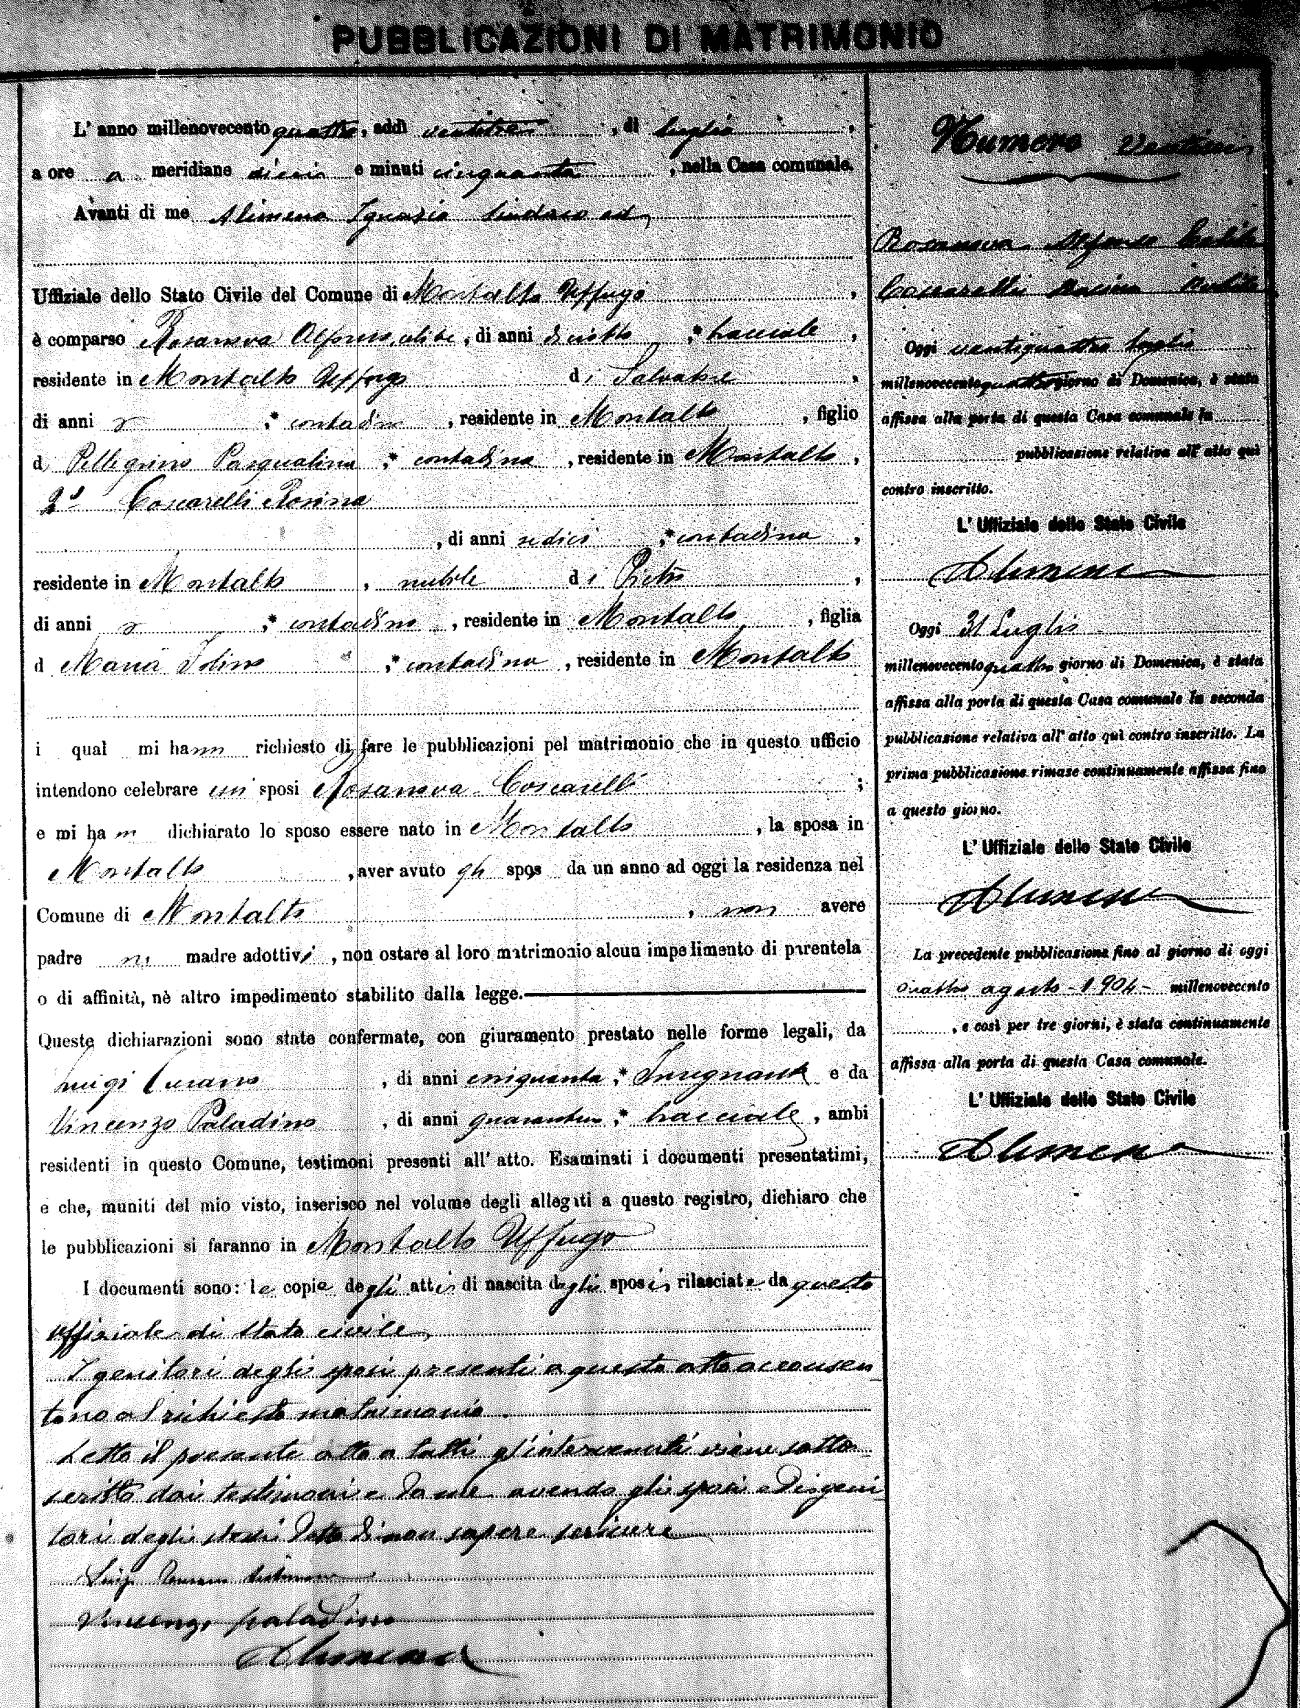 PUBBLICAZIONI DI MATRIMONIO
L' anno millenovecento quattro, addì ventitre, di luglio,
a ore a meridiane dieci e minuti cinquanta, nella Casa comunale.
Avanti di me Alimena Ignazio Sindaco ed
Uffiziale dello Stato Civile del Comune di Montalto Uffugo,
è comparso Rosanova Alfonso celibe, di anni diciotto, * bracciale,
residente in Montalto Uffugo di Salvatore,
di anni , * contadino, residente in Montalto, figlio
d Pellegrino Pasqualina, * contadina, residente in Montalto,
2° Coscarelli Rosina
, di anni sedici, * contadina,
residente in Montalto, nubile di Pietro,
di anni , * contadino, residente in Montalto, figlia
d Maria , * contadina, residente in Montalto
i qual mi hann richiesto di fare le pubblicazioni pel matrimonio che in questo ufficio
intendono celebrare sposi Rosanova Coscarelli;
e mi han dichiarato lo sposo essere nato in Montalto, la sposa in
Montalto, aver avuto gli spos da un anno ad oggi la residenza nel
Comune di Montalto, non avere
padre ni madre adottivi, non ostare al loro matrimonio alcun impedimento di parentela
o di affinità, nè altro impedimento stabilito dalla legge.
Queste dichiarazioni sono state confermate, con giuramento prestato nelle forme legali, da
Luigi , di anni cinquanta, * Insegnante e da
Vincenzo Paladino, di anni , * bracciale, ambi
residenti in questo Comune, testimoni presenti all' atto. Esaminati i documenti presentatimi,
e che, muniti del mio visto, inserisco nel volume degli allegati a questo registro, dichiaro che
le pubblicazioni si faranno in Montalto Uffugo
I documenti sono: le copie degli atti di nascita degli sposi, rilasciate da questo
uffiziale di stato civile,
I genitori degli sposi presenti a questo atto acconsen
tono al richiesto matrimonio.
Letto il presente atto a tutti gl'intervenuti viene sotto
scritto dai testimoni e da me avendo gli sposi e i geni
tori degli stessi detto di non sapere scrivere
Luigi testimone
Vincenzo Paladino
Alimena
Numero
Rosanova Alfonso Celibe
Coscarelli Rosina Nubile
Oggi ventiquattro luglio
millenovecento quattro giorno di Domenica, è stata
affissa alla porta di questa Casa comunale la
pubblicazione relativa all' atto quì
contro inscritto.
L' Uffiziale dello Stato Civile
Alimena
Oggi 31 Luglio
millenovecento quattro giorno di Domenica, è stata
affissa alla porta di questa Casa comunale la seconda
pubblicazione relativa all' atto quì contro inscritto. La
prima pubblicazione rimase continuamente affissa fino
a questo giorno.
L' Uffiziale dello Stato Civile
Alimena
La precedente pubblicazione fino al giorno di oggi
quattro agosto - 1904 - millenovecento
, e così per tre giorni, è stata continuamente
affissa alla porta di questa Casa comunale.
L' Uffiziale dello Stato Civile
Alimena